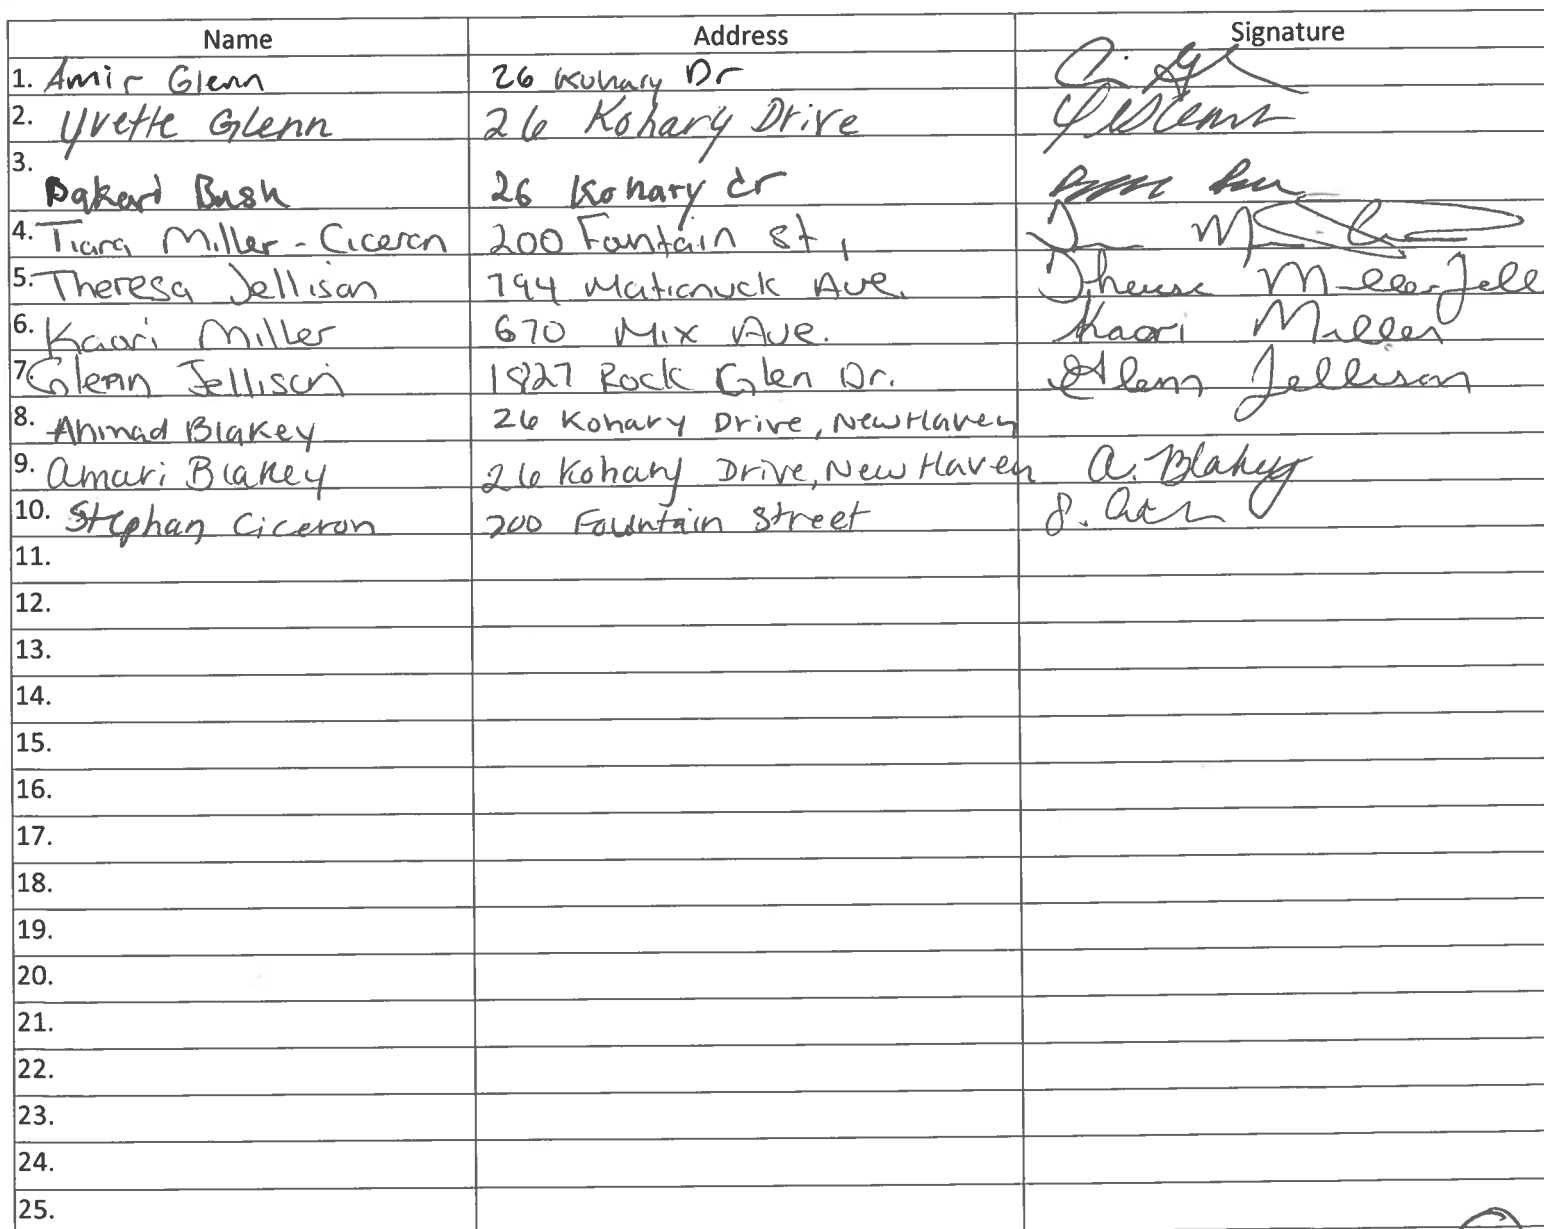 Name Address Signature
1. Amir Glenn 26 Kohary Dr
2. Yvette Glenn 26 Kohary Drive
3. Bush 26 Kohary dr
4. Tiara Miller-Ciceron 200 Fountain st,
5. Theresa Jellison 794 Matianuck Ave. Theresa Miller Jell
6. Kaori Miller 670 Mix Ave. Kaori Miller
7 Glenn Jellison 1827 Rock Glen Dr. Glenn Jellison
8. Ahmad Blakey 26 Kohary Drive, New Haven
9. Amari Blakey 26 Kohary Drive, New Haven A. Blakey
10. Stephan Ciceron 200 Fountain Street
11.
12.
13.
14.
15.
16.
17.
18.
19.
20.
21.
22.
23.
24.
25.